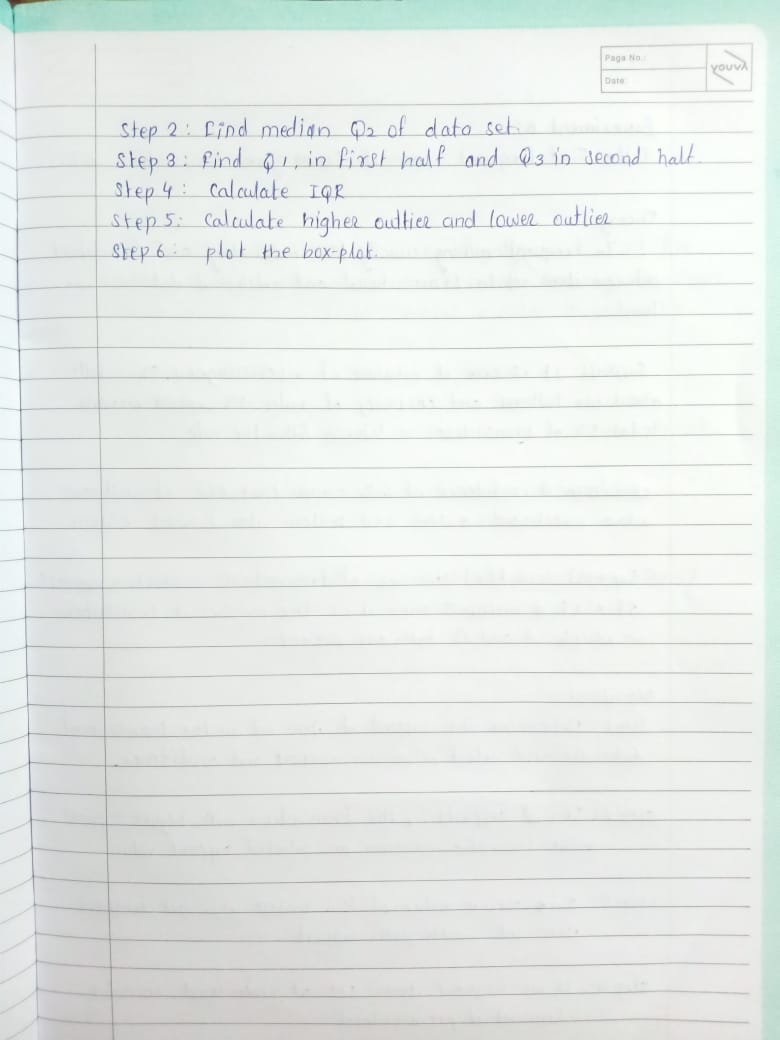 Page No.:
Date:
YOUVA
Step 2: Find median Q2 of data set.
Step 3: Find Q1, in first half and Q3 in second half.
Step 4: Calculate IQR
Step 5: Calculate higher outlier and lower outlier
Step 6: plot the box-plot.